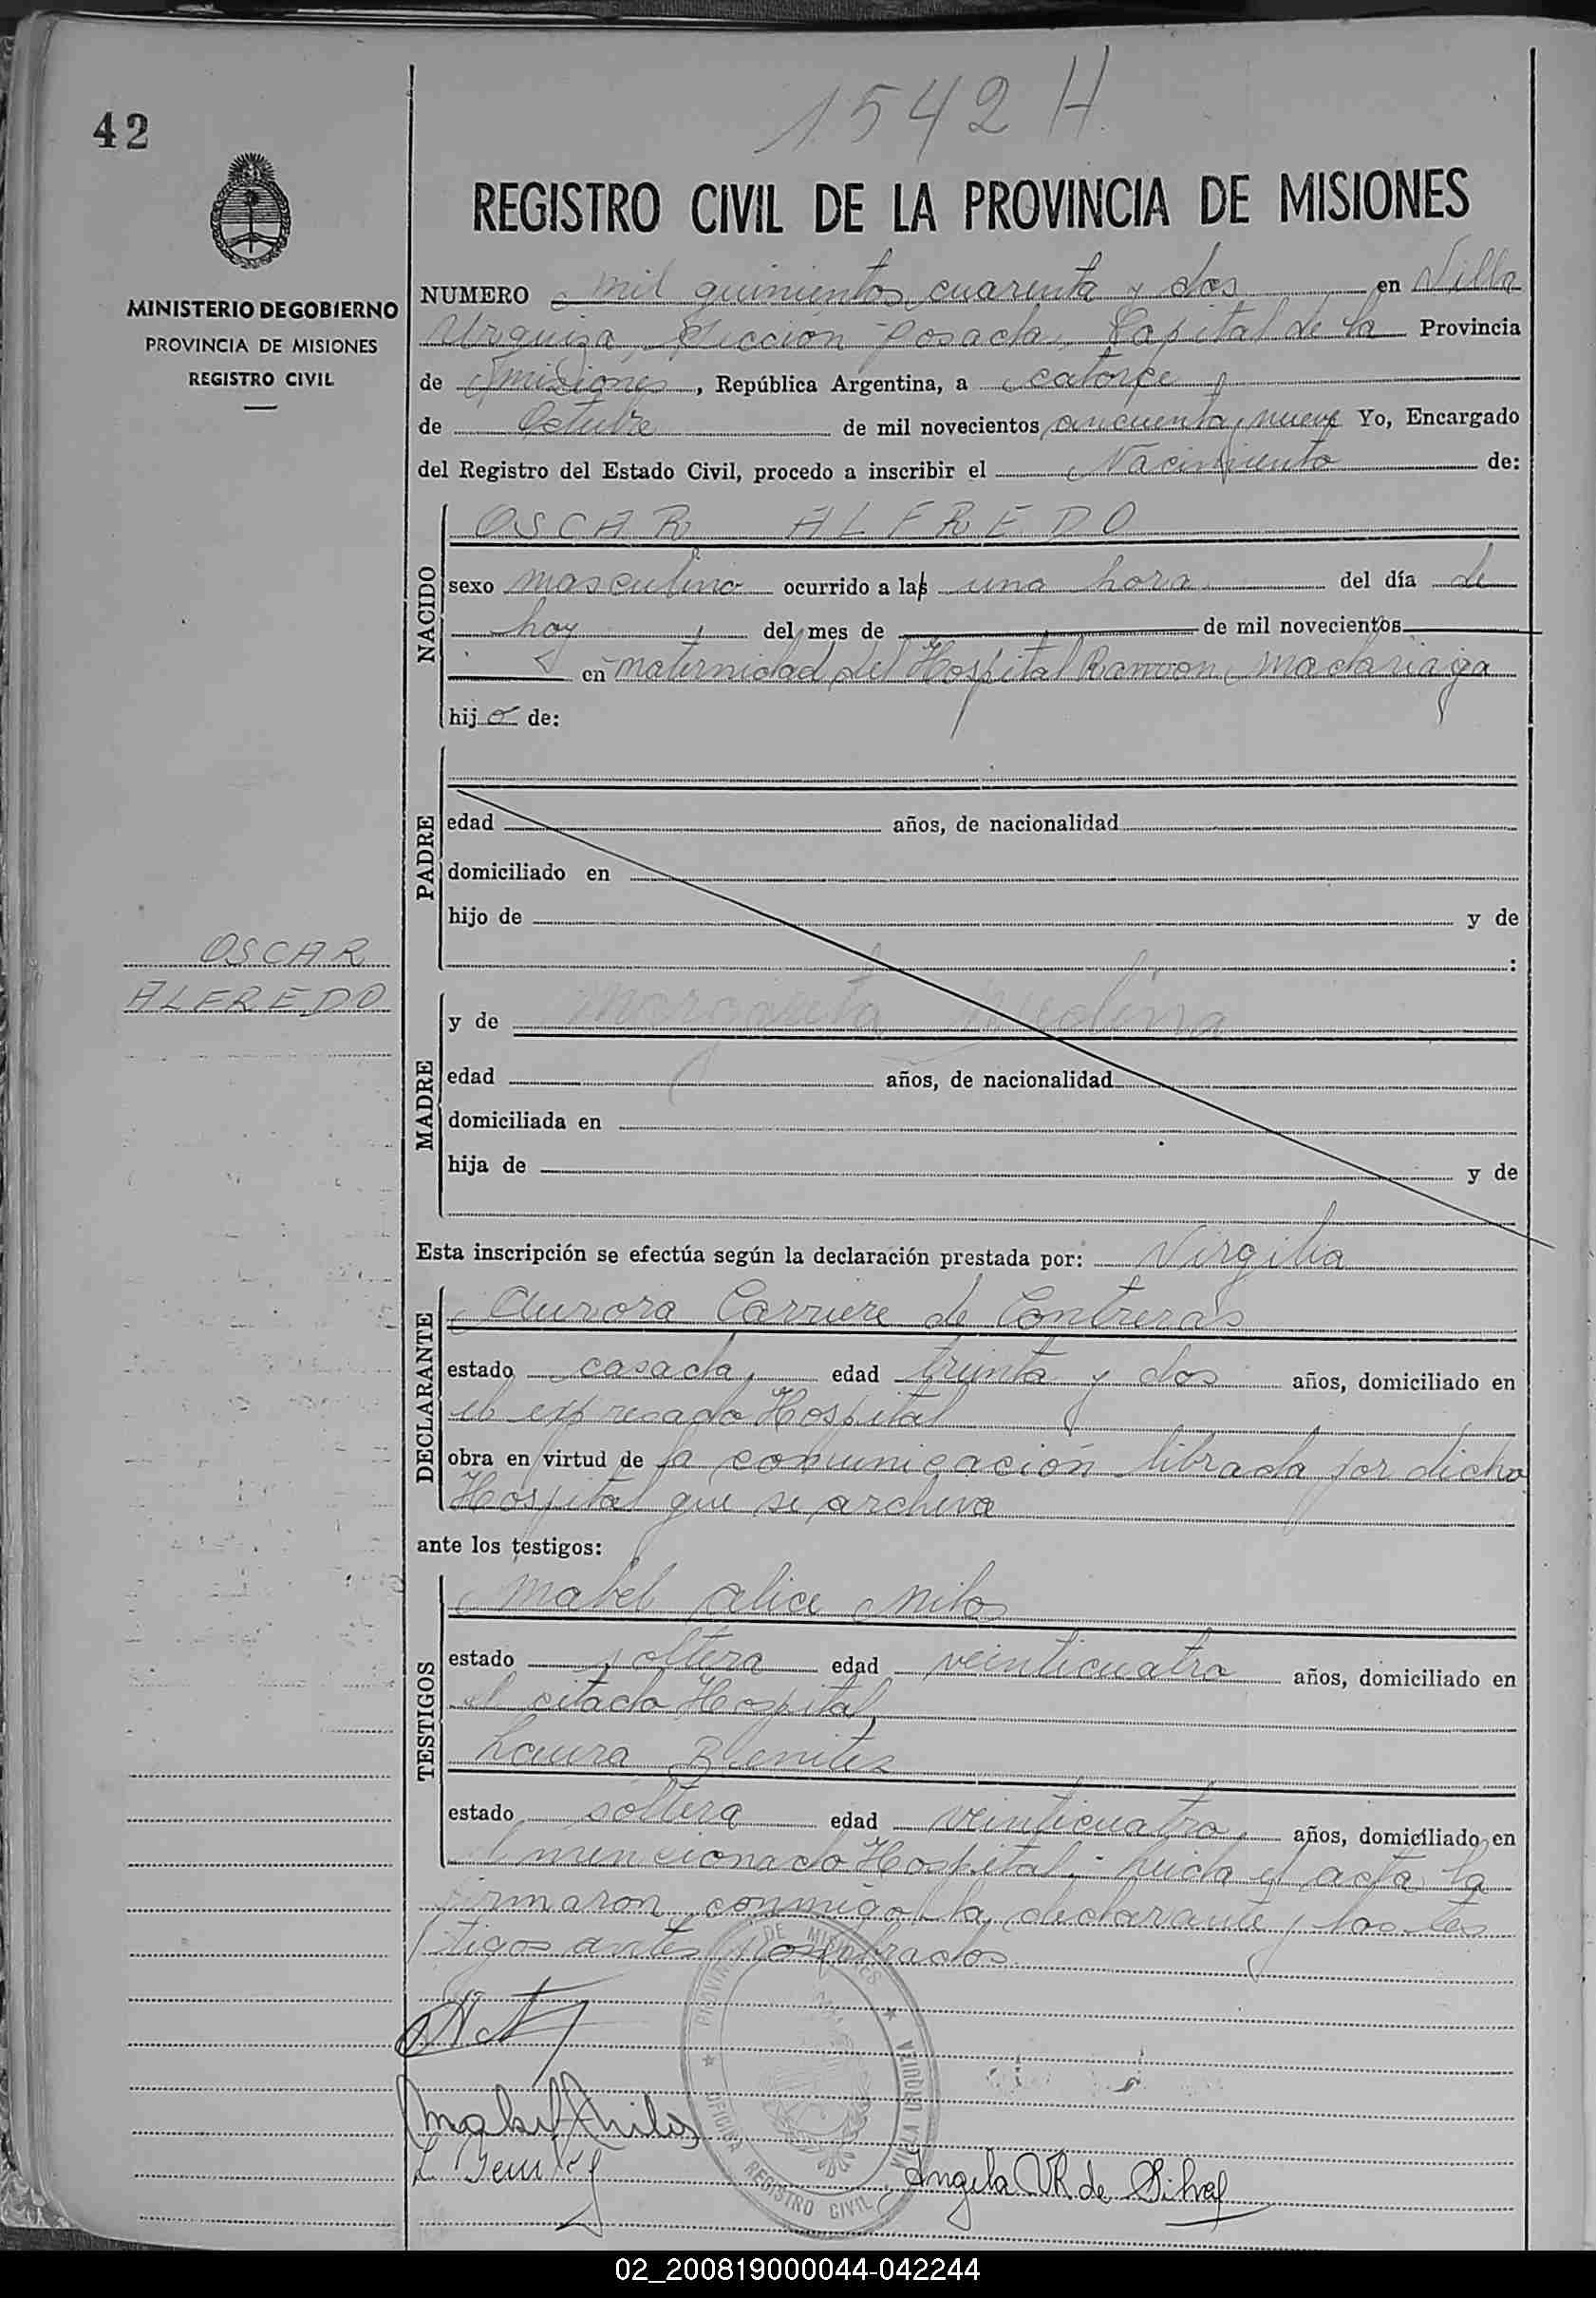 42
1542 H
REGISTRO CIVIL DE LA PROVINCIA DE MISIONES
MINISTERIO DE GOBIERNO
PROVINCIA DE MISIONES
REGISTRO CIVIL
NUMERO mil quinientos cuarenta y dos en Villa
Urquiza, Sección Posadas, Capital de la Provincia
de Misiones, República Argentina, a catorce
de Octubre de mil novecientos cincuenta y nueve Yo, Encargado
del Registro del Estado Civil, procedo a inscribir el Nacimiento de:
NACIDO
OSCAR ALFREDO
sexo masculino ocurrido a las una hora del día de
hoy del mes de de mil novecientos
en maternidad del Hospital Ramon Madariaga
hijo de:
PADRE
edad años, de nacionalidad
domiciliado en
hijo de y de
:
OSCAR
ALFREDO
MADRE
y de Margarita Medina
edad años, de nacionalidad
domiciliada en
hija de y de
Esta inscripción se efectúa según la declaración prestada por: Virgilia
DECLARANTE
Aurora Carriere de Contreras
estado casada, edad treinta y dos años, domiciliado en
el expresado Hospital
obra en virtud de la comunicación librada por dicho
Hospital que se archiva
ante los testigos:
TESTIGOS
Mabel Alice Milos
estado soltera edad veinticuatro años, domiciliado en
el citado Hospital,
Laura Benitez
estado soltera edad veinticuatro, años, domiciliado en
el mencionado Hospital.- Leida el acta la
firmaron conmigo la declarante y los tes
tigos antes nombrados
PROVINCIA DE MISIONES
OFICINA REGISTRO CIVIL
VILLA URQUIZA
Angela VR de Silva
02_200819000044-042244